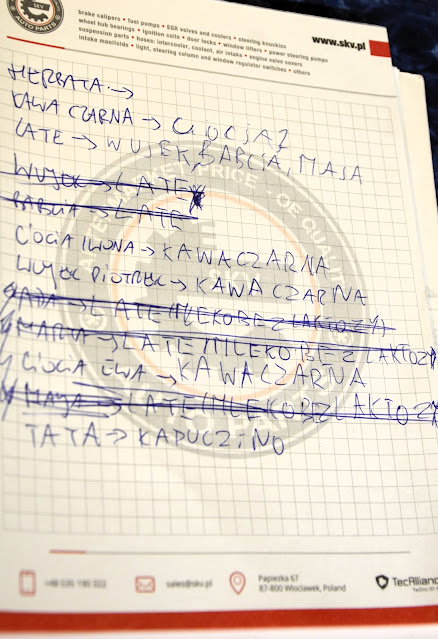 SKV
AUTO PARTS
brake calipers • fuel pumps • EGR valves and coolers • steering knuckles
wheel hub bearings • ignition coils • door locks • window lifters • power steering pumps
suspension parts • hoses: intercooler, coolant, air intake • engine valve covers
intake manifolds • light, steering column and window regulator switches • others
www.skv.pl
HERBATA →
KAWA CZARNA → CIOCIA
LATE → WUJEK, BABCIA, MAJA
WUJEK → LATE
BABCIA → LATE
CIOCIA IWONA → KAWA CZARNA
WUJEK PIOTREK → KAWA CZARNA
→ LATE (MLEKO BEZ LAKTOZY)
MARTA → LATE (MLEKO BEZ LAKTOZY
CIOCIA EWA → KAWA CZARNA
MAJA → LATE (MLEKO BEZ LAKTOZY
TATA → KAPUCZINO
sales@skv.pl
Papieżka 67
87-800 Włocławek, Poland
TecAllian